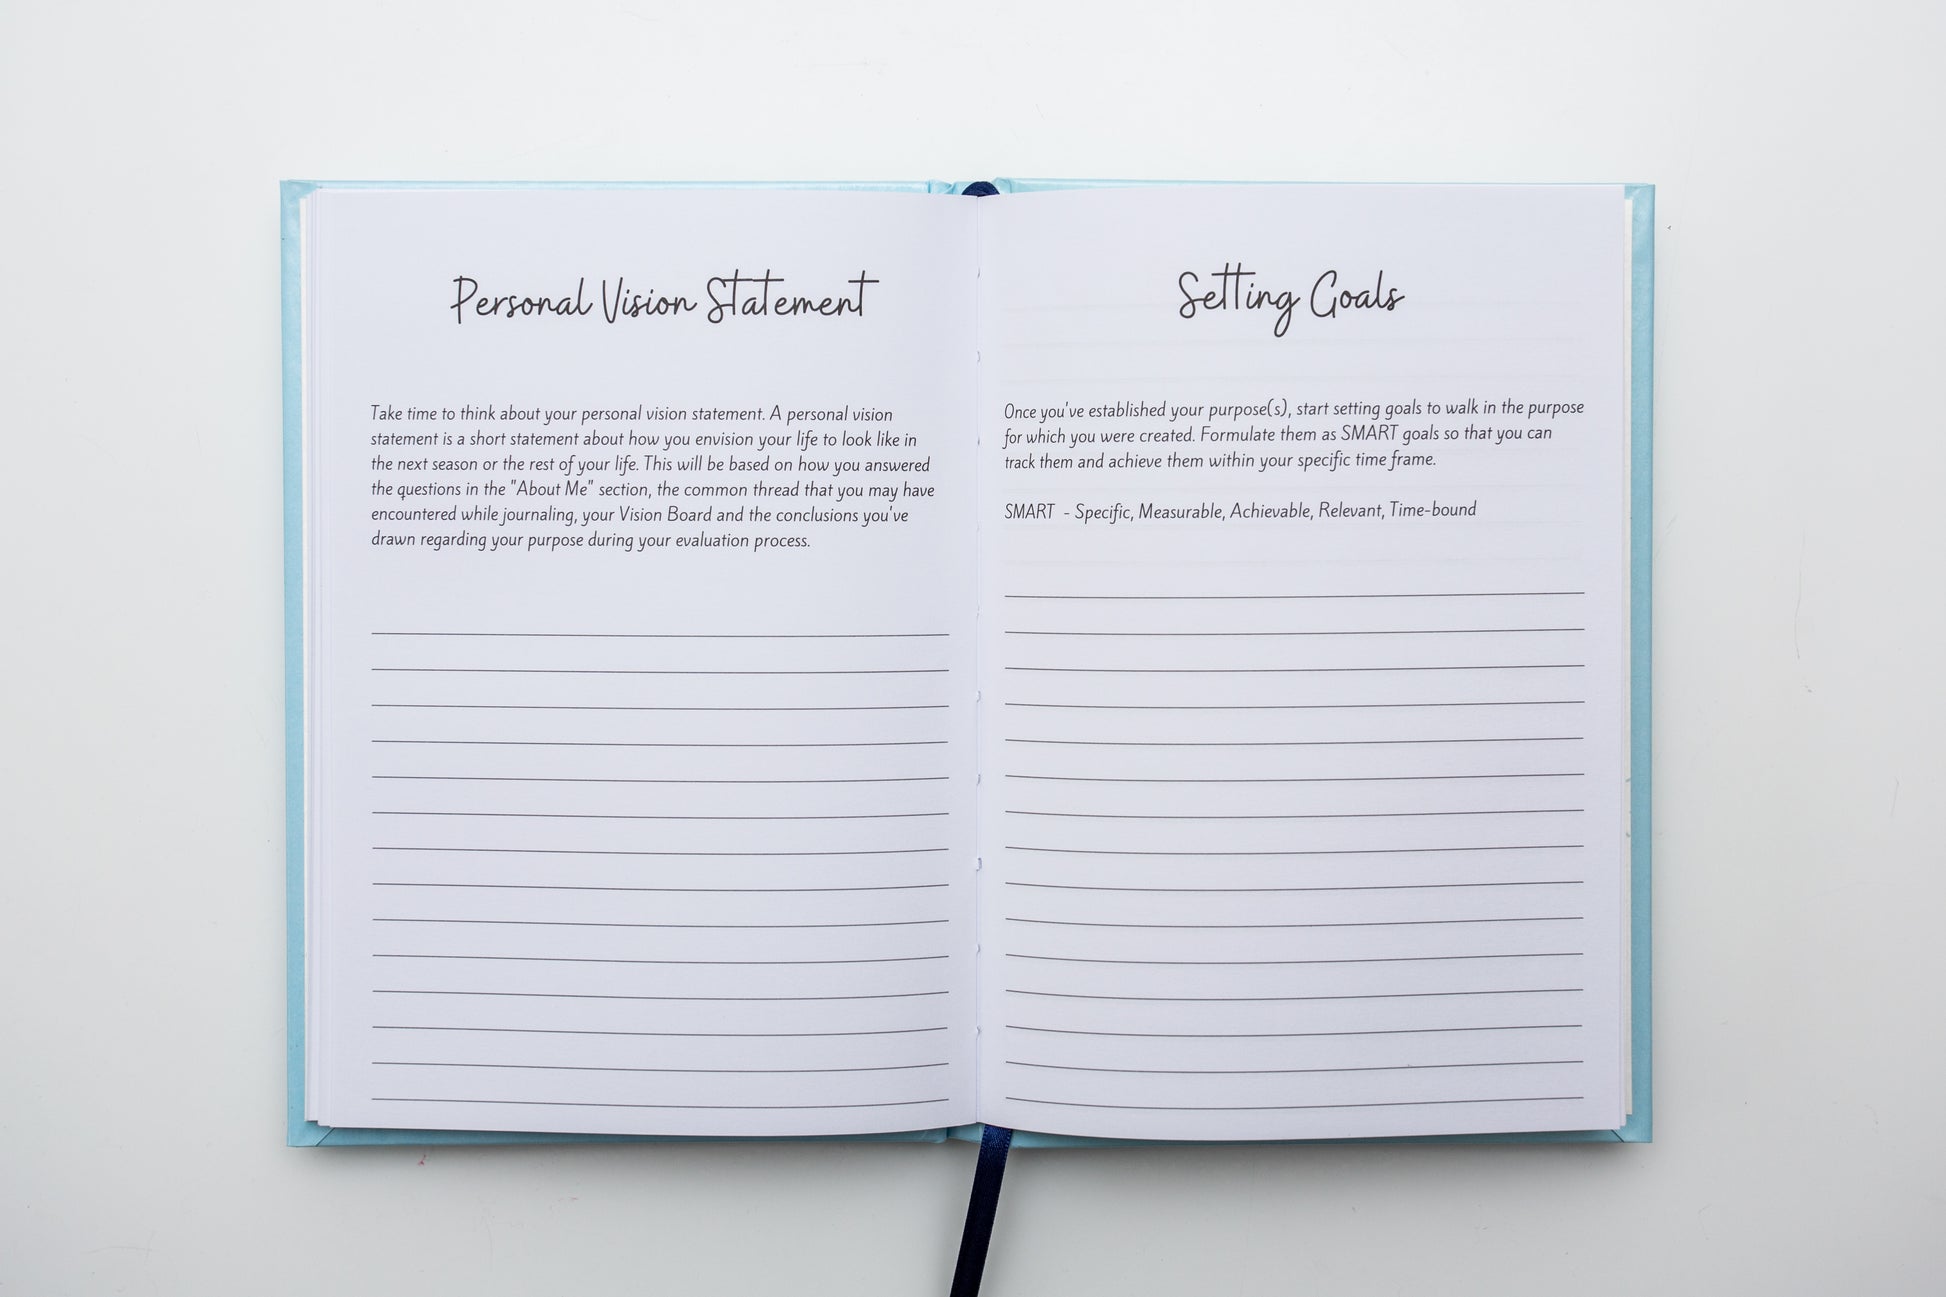 Personal Vision Statement
Take time to think about your personal vision statement. A personal vision
statement is a short statement about how you envision your life to look like in
the next season or the rest of your life. This will be based on how you answered
the questions in the "About Me" section, the common thread that you may have
encountered while journaling, your Vision Board and the conclusions you've
drawn regarding your purpose during your evaluation process.
Setting Goals
Once you've established your purpose(s), start setting goals to walk in the purpose
for which you were created. Formulate them as SMART goals so that you can
track them and achieve them within your specific time frame.
SMART - Specific, Measurable, Achievable, Relevant, Time-bound